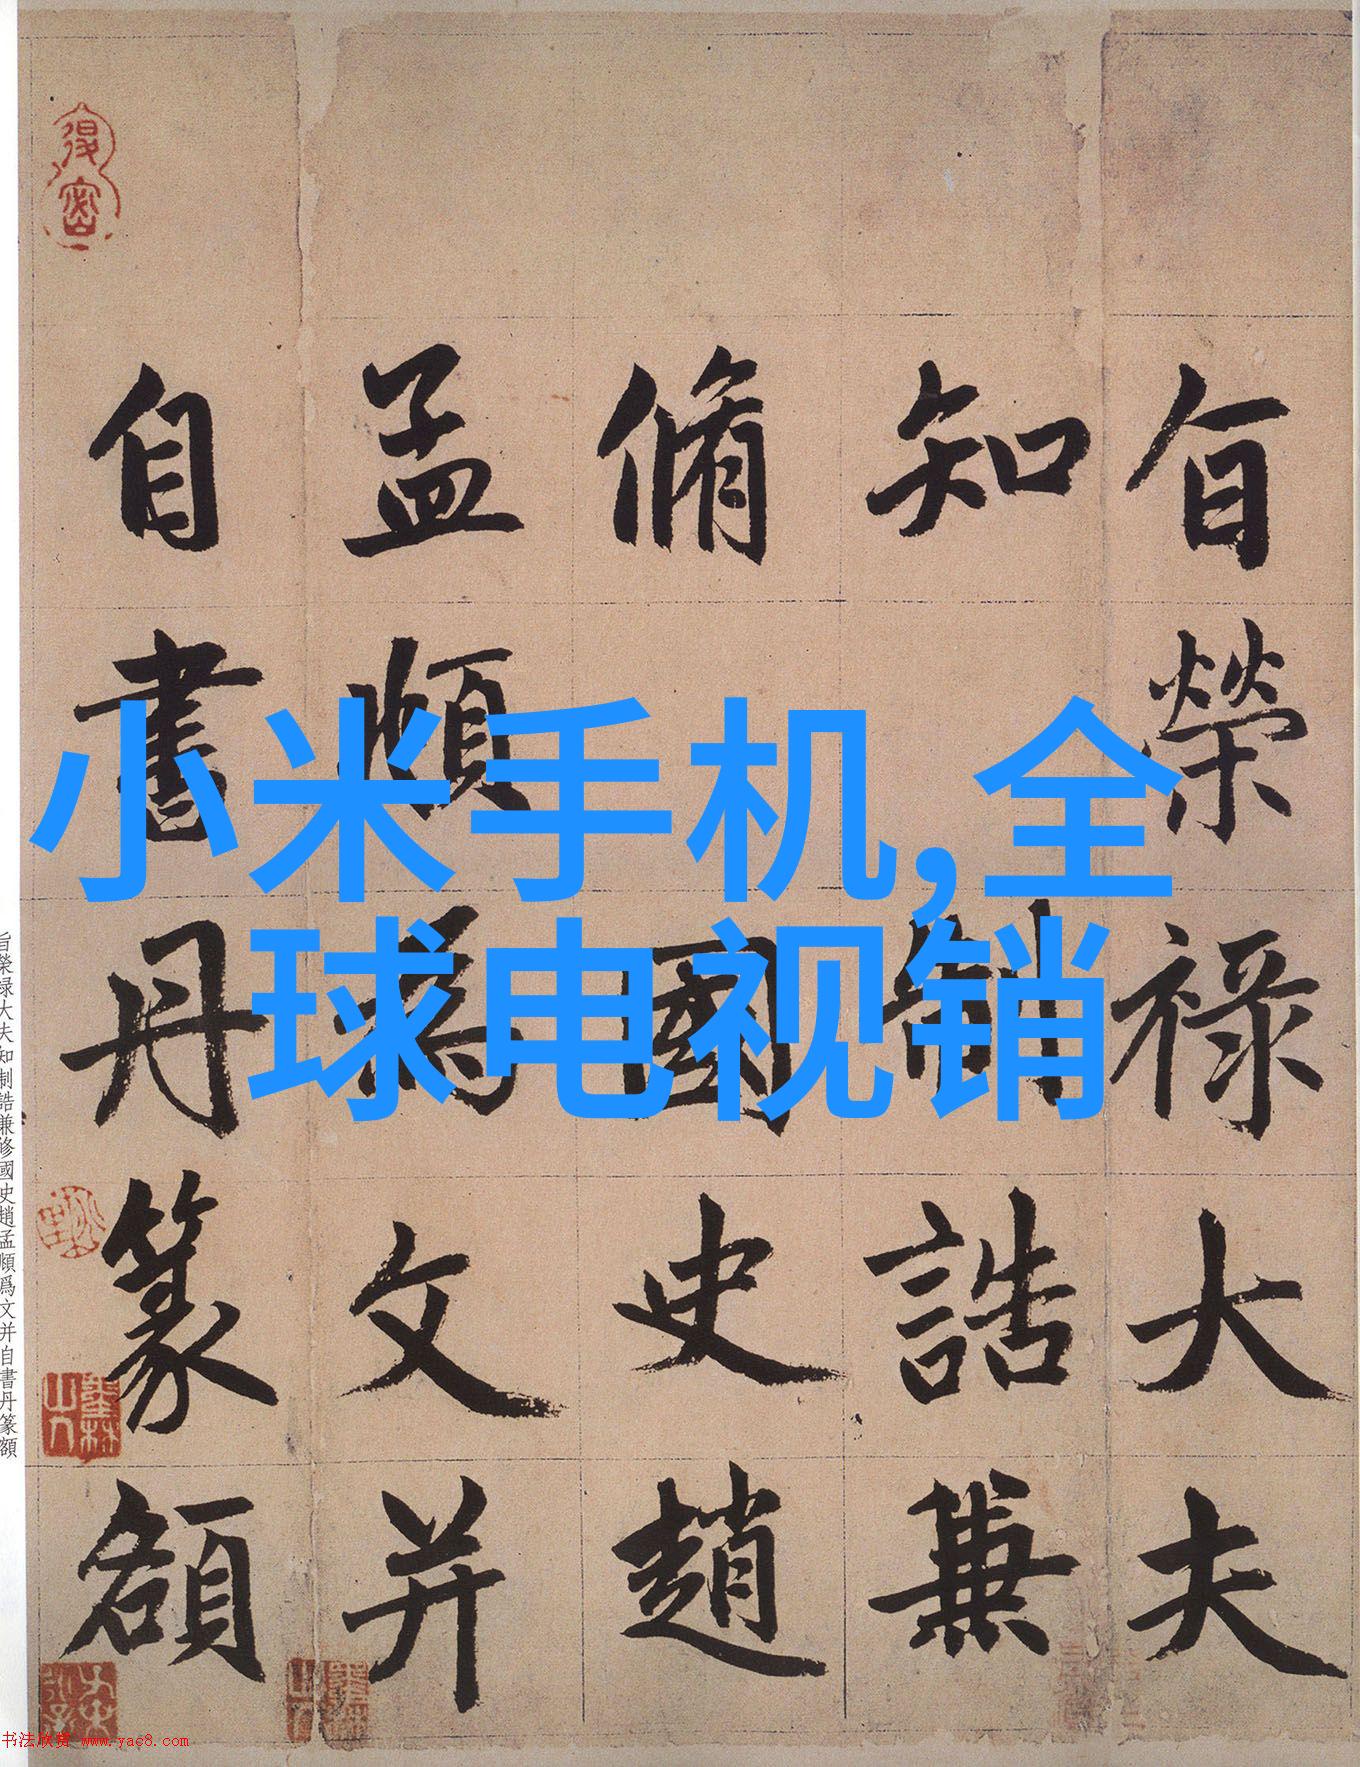 小米手机,全
球电视销
旨榮祿大夫
知制誥兼
脩國史趙
孟頫為文并
自書丹篆額
旨榮禄大夫知制誥兼修國史趙孟頫爲文并自書丹篆額
书法欣赏 www.yac8.com